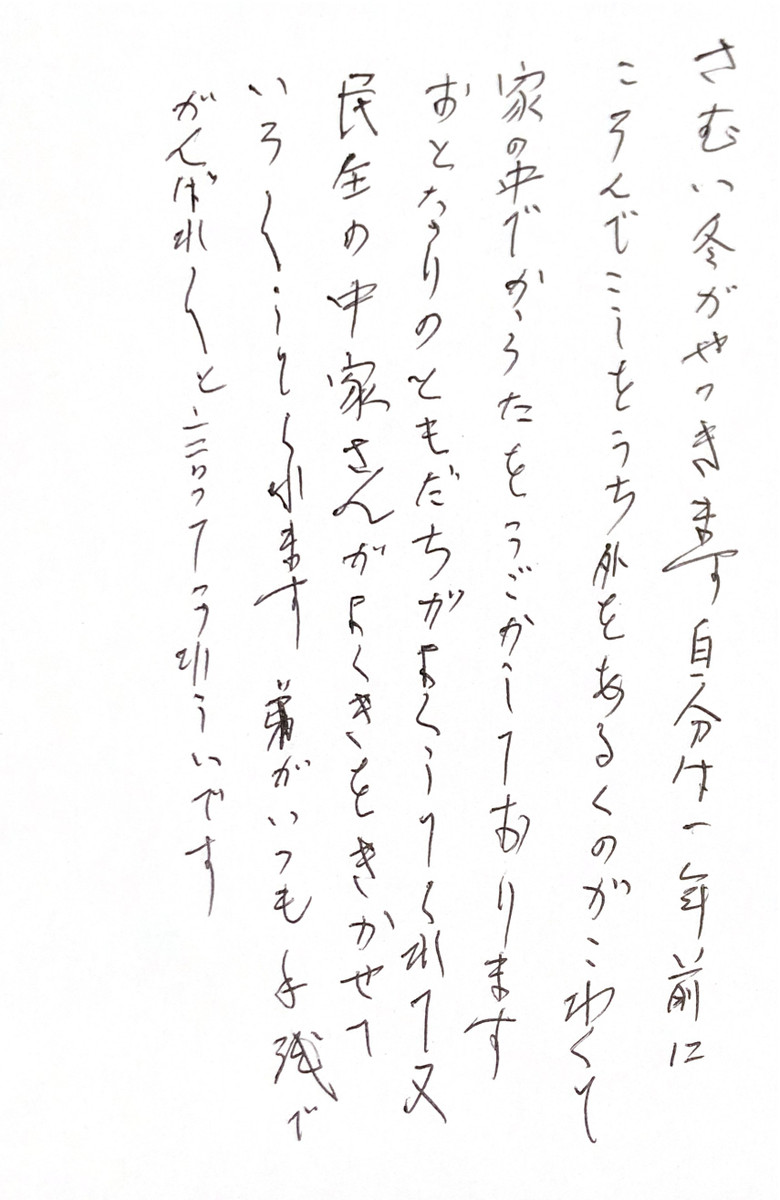 さむい冬がやつきます自分は一年前に
ころんでこしをうち外をあるくのがこわくて
家の中でからたをうごかしております
おとなりのともだちがよくしてくれて又
民生の中家さんがよくきをきかせて
いろくしてくれます 弟がいつも手残で
がんばれくと言ってうれういです